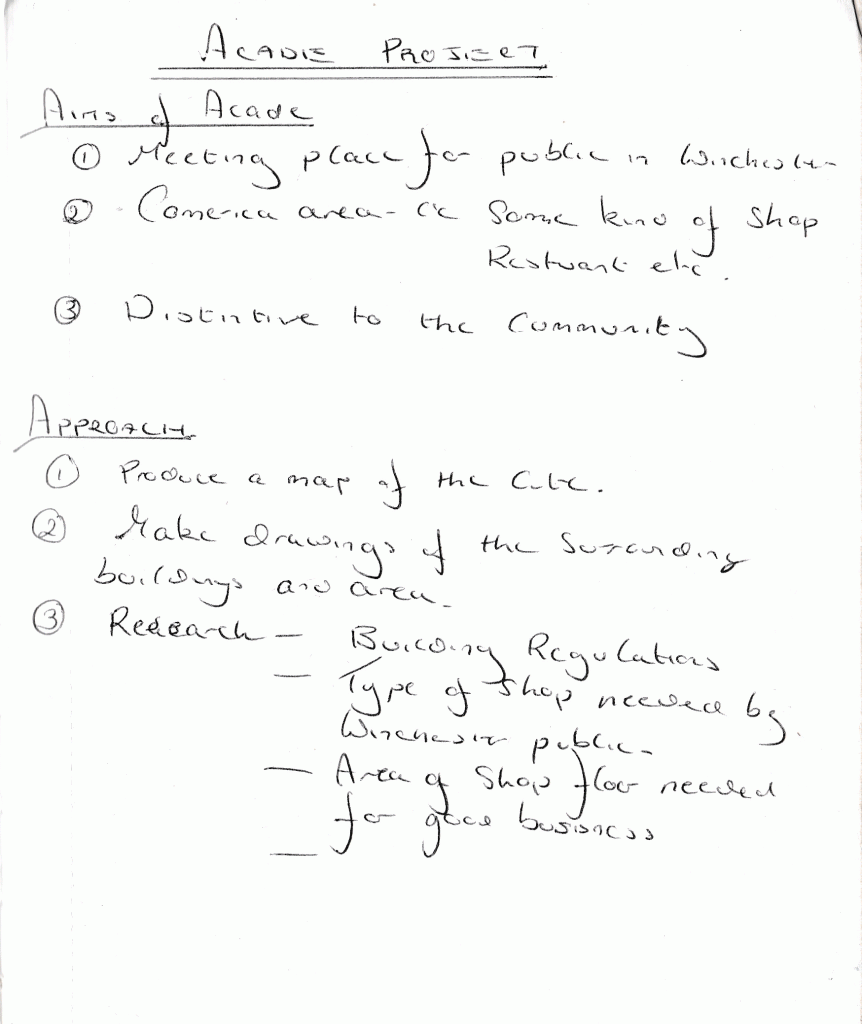 ACADIE PROJECT
Aims of Acade
① Meeting place for public in Winchester
② Comerica area - ie Some kind of Shop
Restuant etc.
③ Distintive to the Community
APPROACH
① Produce a map of the
② Make drawings of the Surounding
buildings and area.
③ Research - Building Regulations
- Type of Shop needed by
Winchester public.
- Area of Shop floor needed
for good business
-